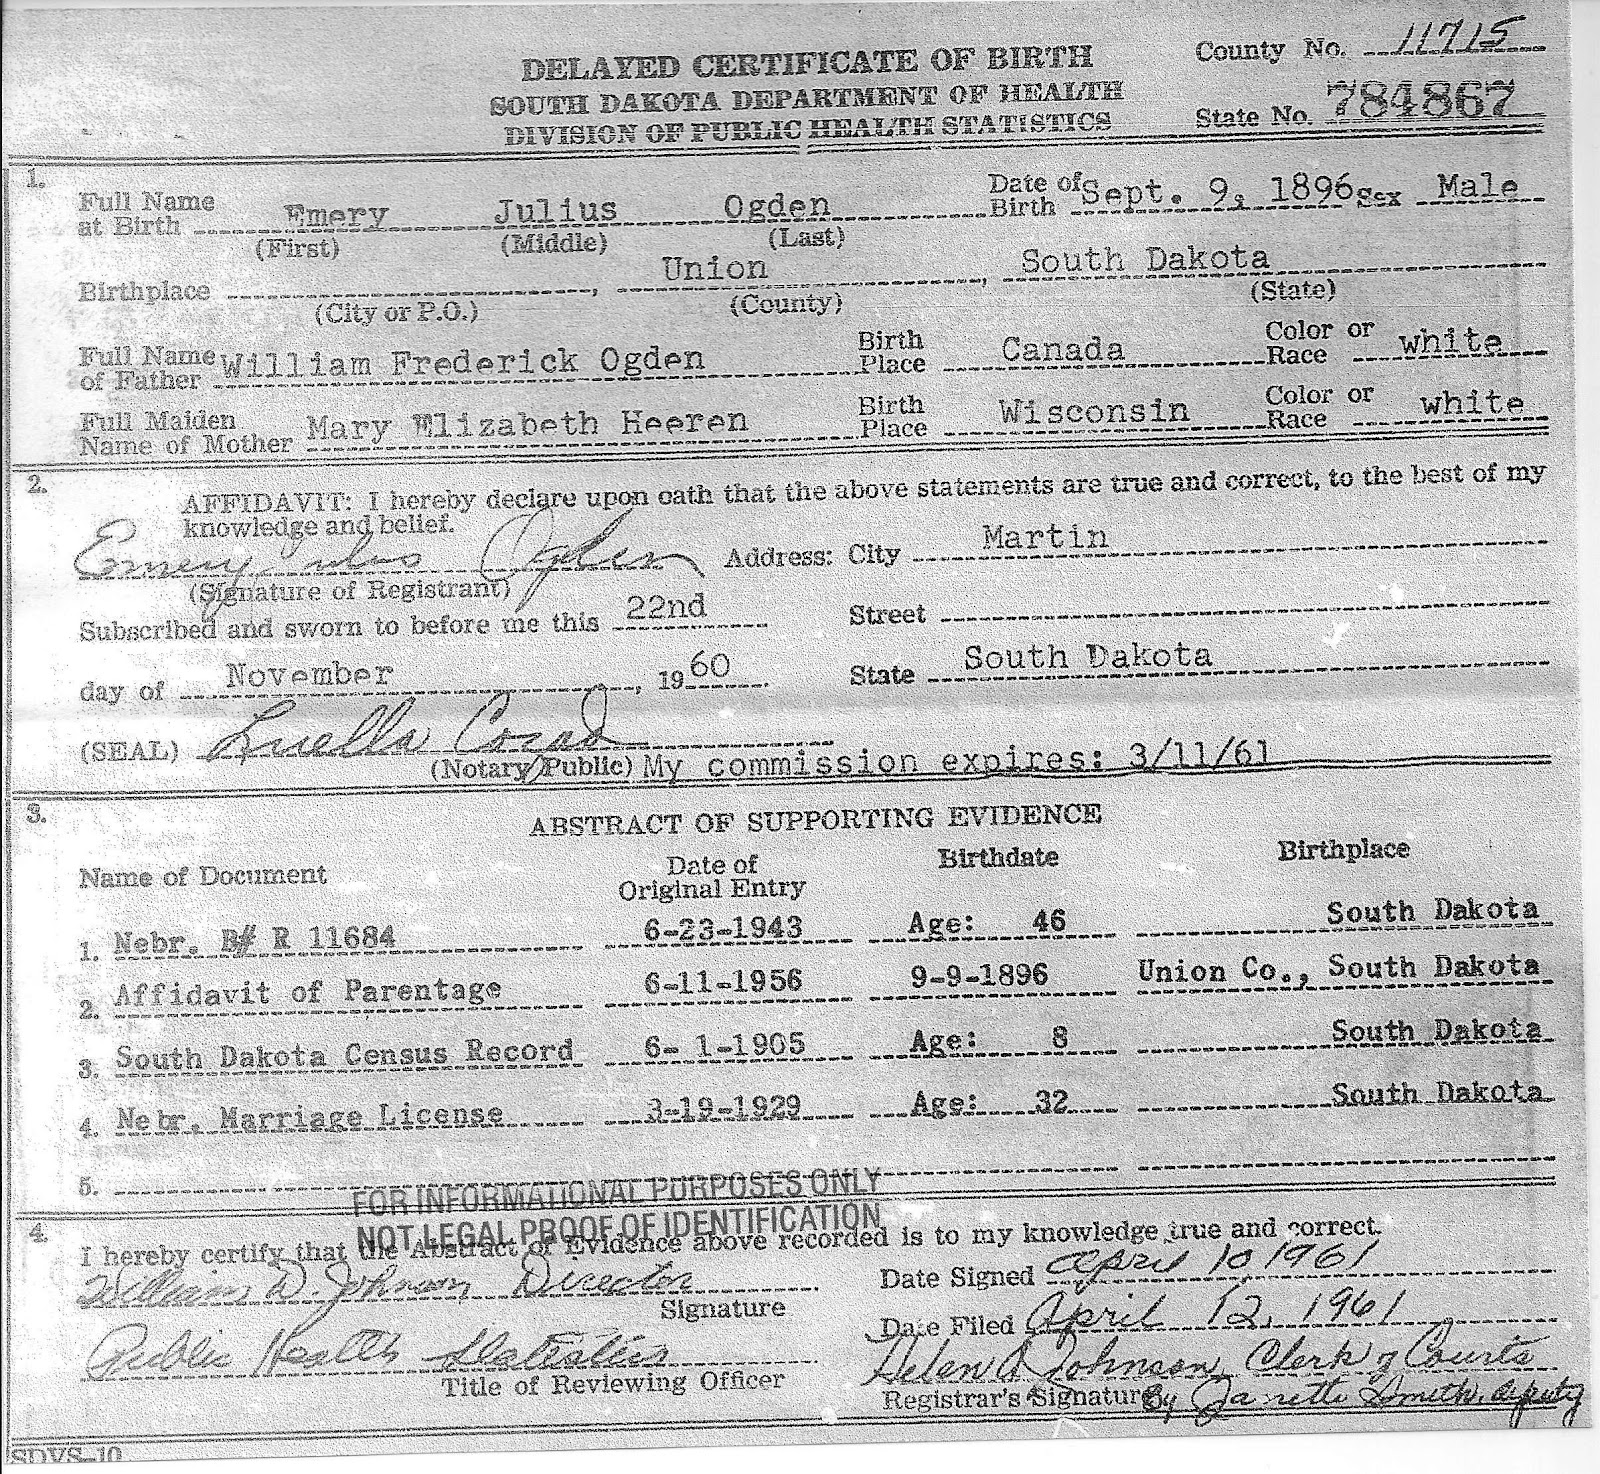 DELAYED CERTIFICATE OF BIRTH
County No. 11715
SOUTH DAKOTA DEPARTMENT OF HEALTH
DIVISION OF PUBLIC HEALTH STATISTICS
State No. 784867
1.
Full Name at Birth Emery Julius Ogden Date of Birth Sept. 9, 1896 Sex Male
(First) (Middle) (Last)
Birthplace , Union , South Dakota
(City or P.O.) (County) (State)
Full Name of Father William Frederick Ogden Birth Place Canada Color or Race white
Full Maiden Name of Mother Mary Elizabeth Heeren Birth Place Wisconsin Color or Race white
2.
AFFIDAVIT: I hereby declare upon oath that the above statements are true and correct, to the best of my
knowledge and belief.
Emery Julius Ogden Address: City Martin
(Signature of Registrant)
Subscribed and sworn to before me this 22nd Street
day of November , 1960 State South Dakota
(SEAL) Luella Cozad
(Notary Public) My commission expires: 3/11/61
3.
ABSTRACT OF SUPPORTING EVIDENCE
Name of Document Date of Original Entry Birthdate Birthplace
1. Nebr. B# R 11684 6-23-1943 Age: 46 South Dakota
2. Affidavit of Parentage 6-11-1956 9-9-1896 Union Co., South Dakota
3. South Dakota Census Record 6- 1-1905 Age: 8 South Dakota
4. Nebr. Marriage License 3-19-1929 Age: 32 South Dakota
5.
FOR INFORMATIONAL PURPOSES ONLY
NOT LEGAL PROOF OF IDENTIFICATION
4.
I hereby certify that the Abstract of Evidence above recorded is to my knowledge true and correct.
William D. Johnson, Director Date Signed April 10 1961
Signature
Date Filed April 12, 1961
Public Health Statistics Helen A Johnson, Clerk of Courts
Title of Reviewing Officer Registrar's Signature By Janette Smith, deputy
SDVS-10